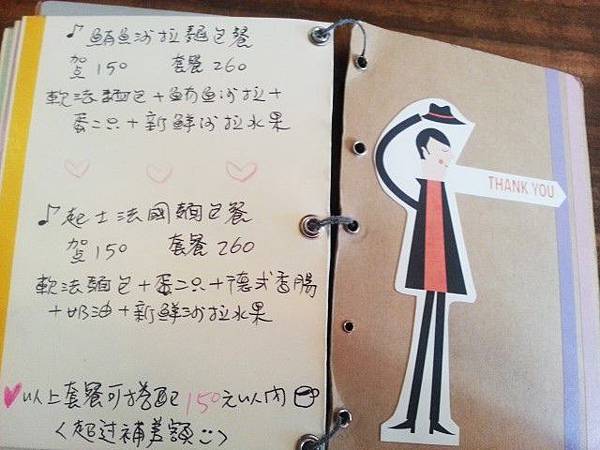 ♪鮪魚沙拉麵包餐
點150 套餐260
軟法麵包+鮪魚沙拉+
蛋二只+新鮮沙拉水果
♪起士法國麵包餐
點150 套餐260
軟法麵包+蛋二只+德式香腸
+奶油+新鮮沙拉水果
♥以上套餐可搭配150元以內
<超过補差額:)>
THANK YOU